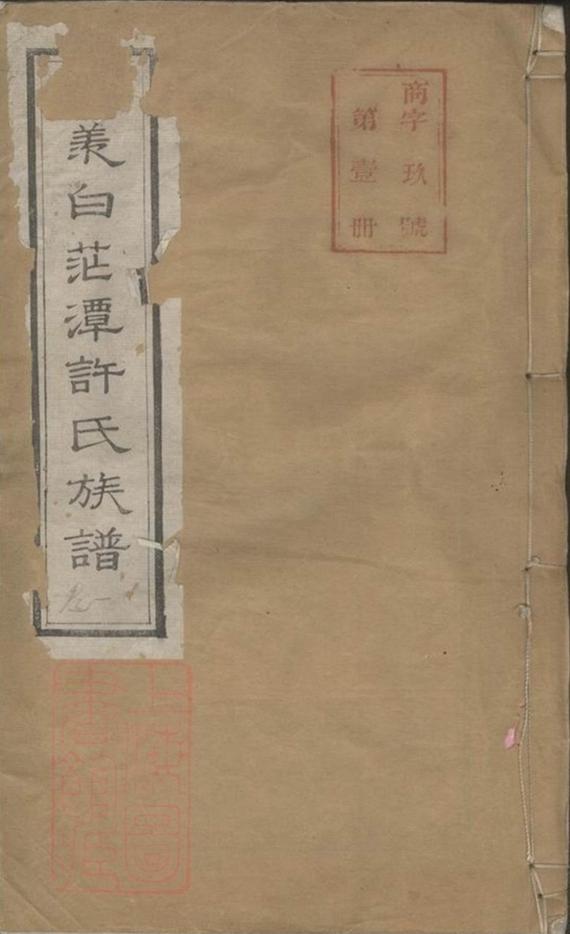 商字玖號
第壹冊
白茫潭許氏族譜
卷一
上海圖
書館藏